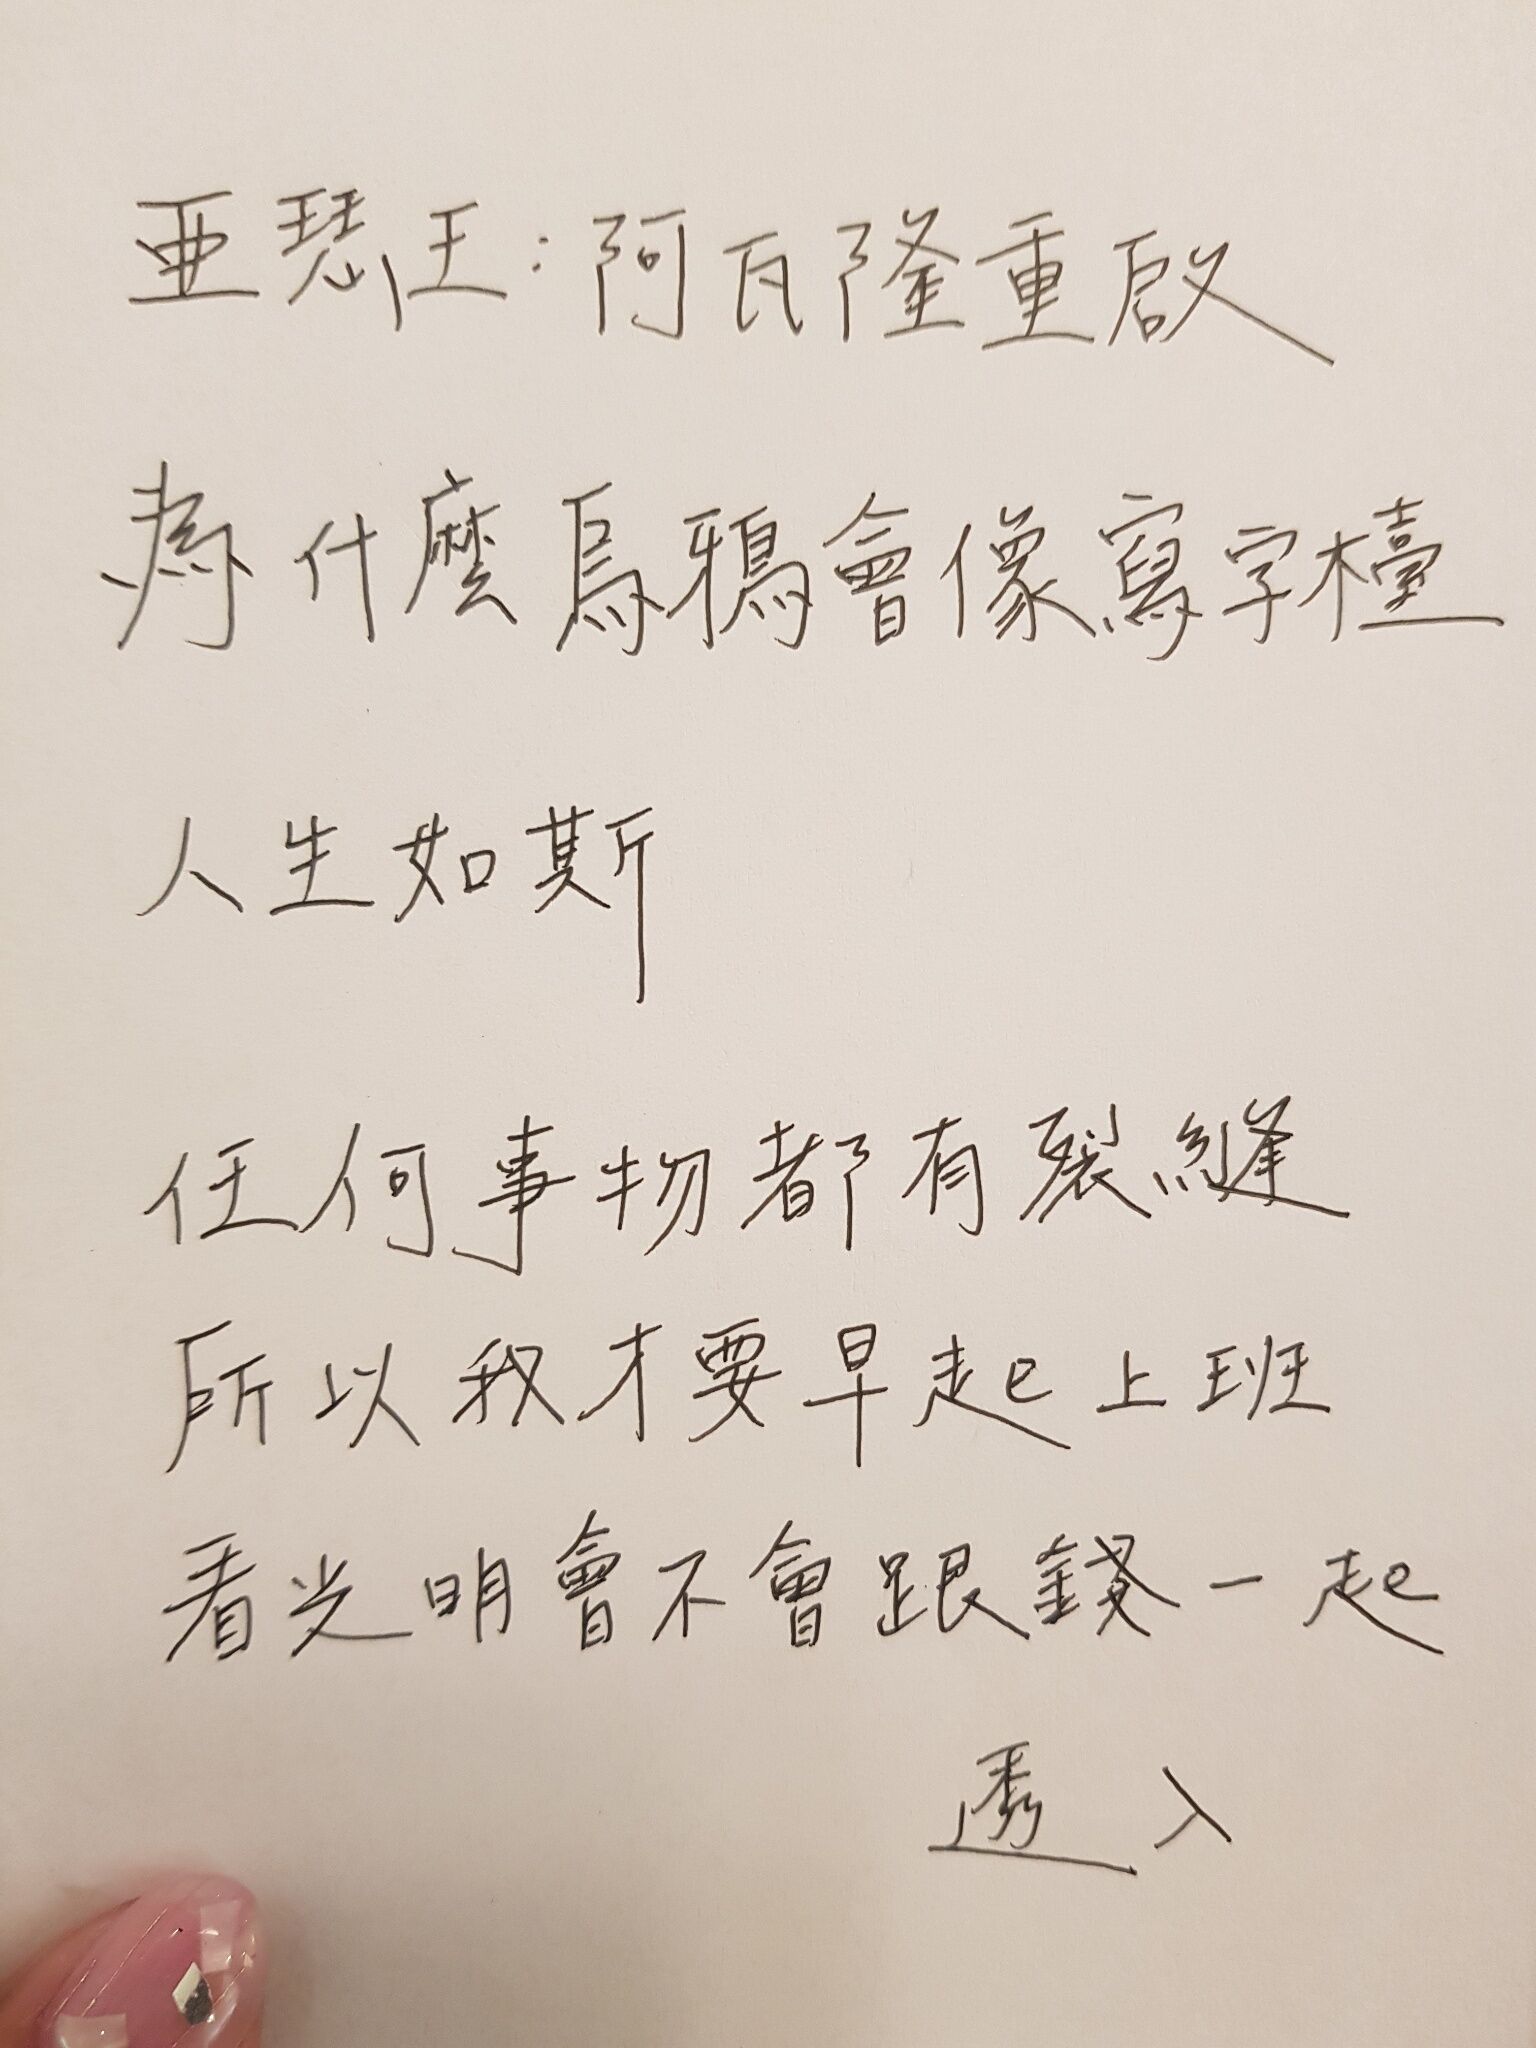 亞瑟王:阿瓦隆重啟
為什麼烏鴉會像寫字檯
人生如斯
任何事物都有裂縫
所以我才要早起上班
看光明會不會跟錢一起
透入